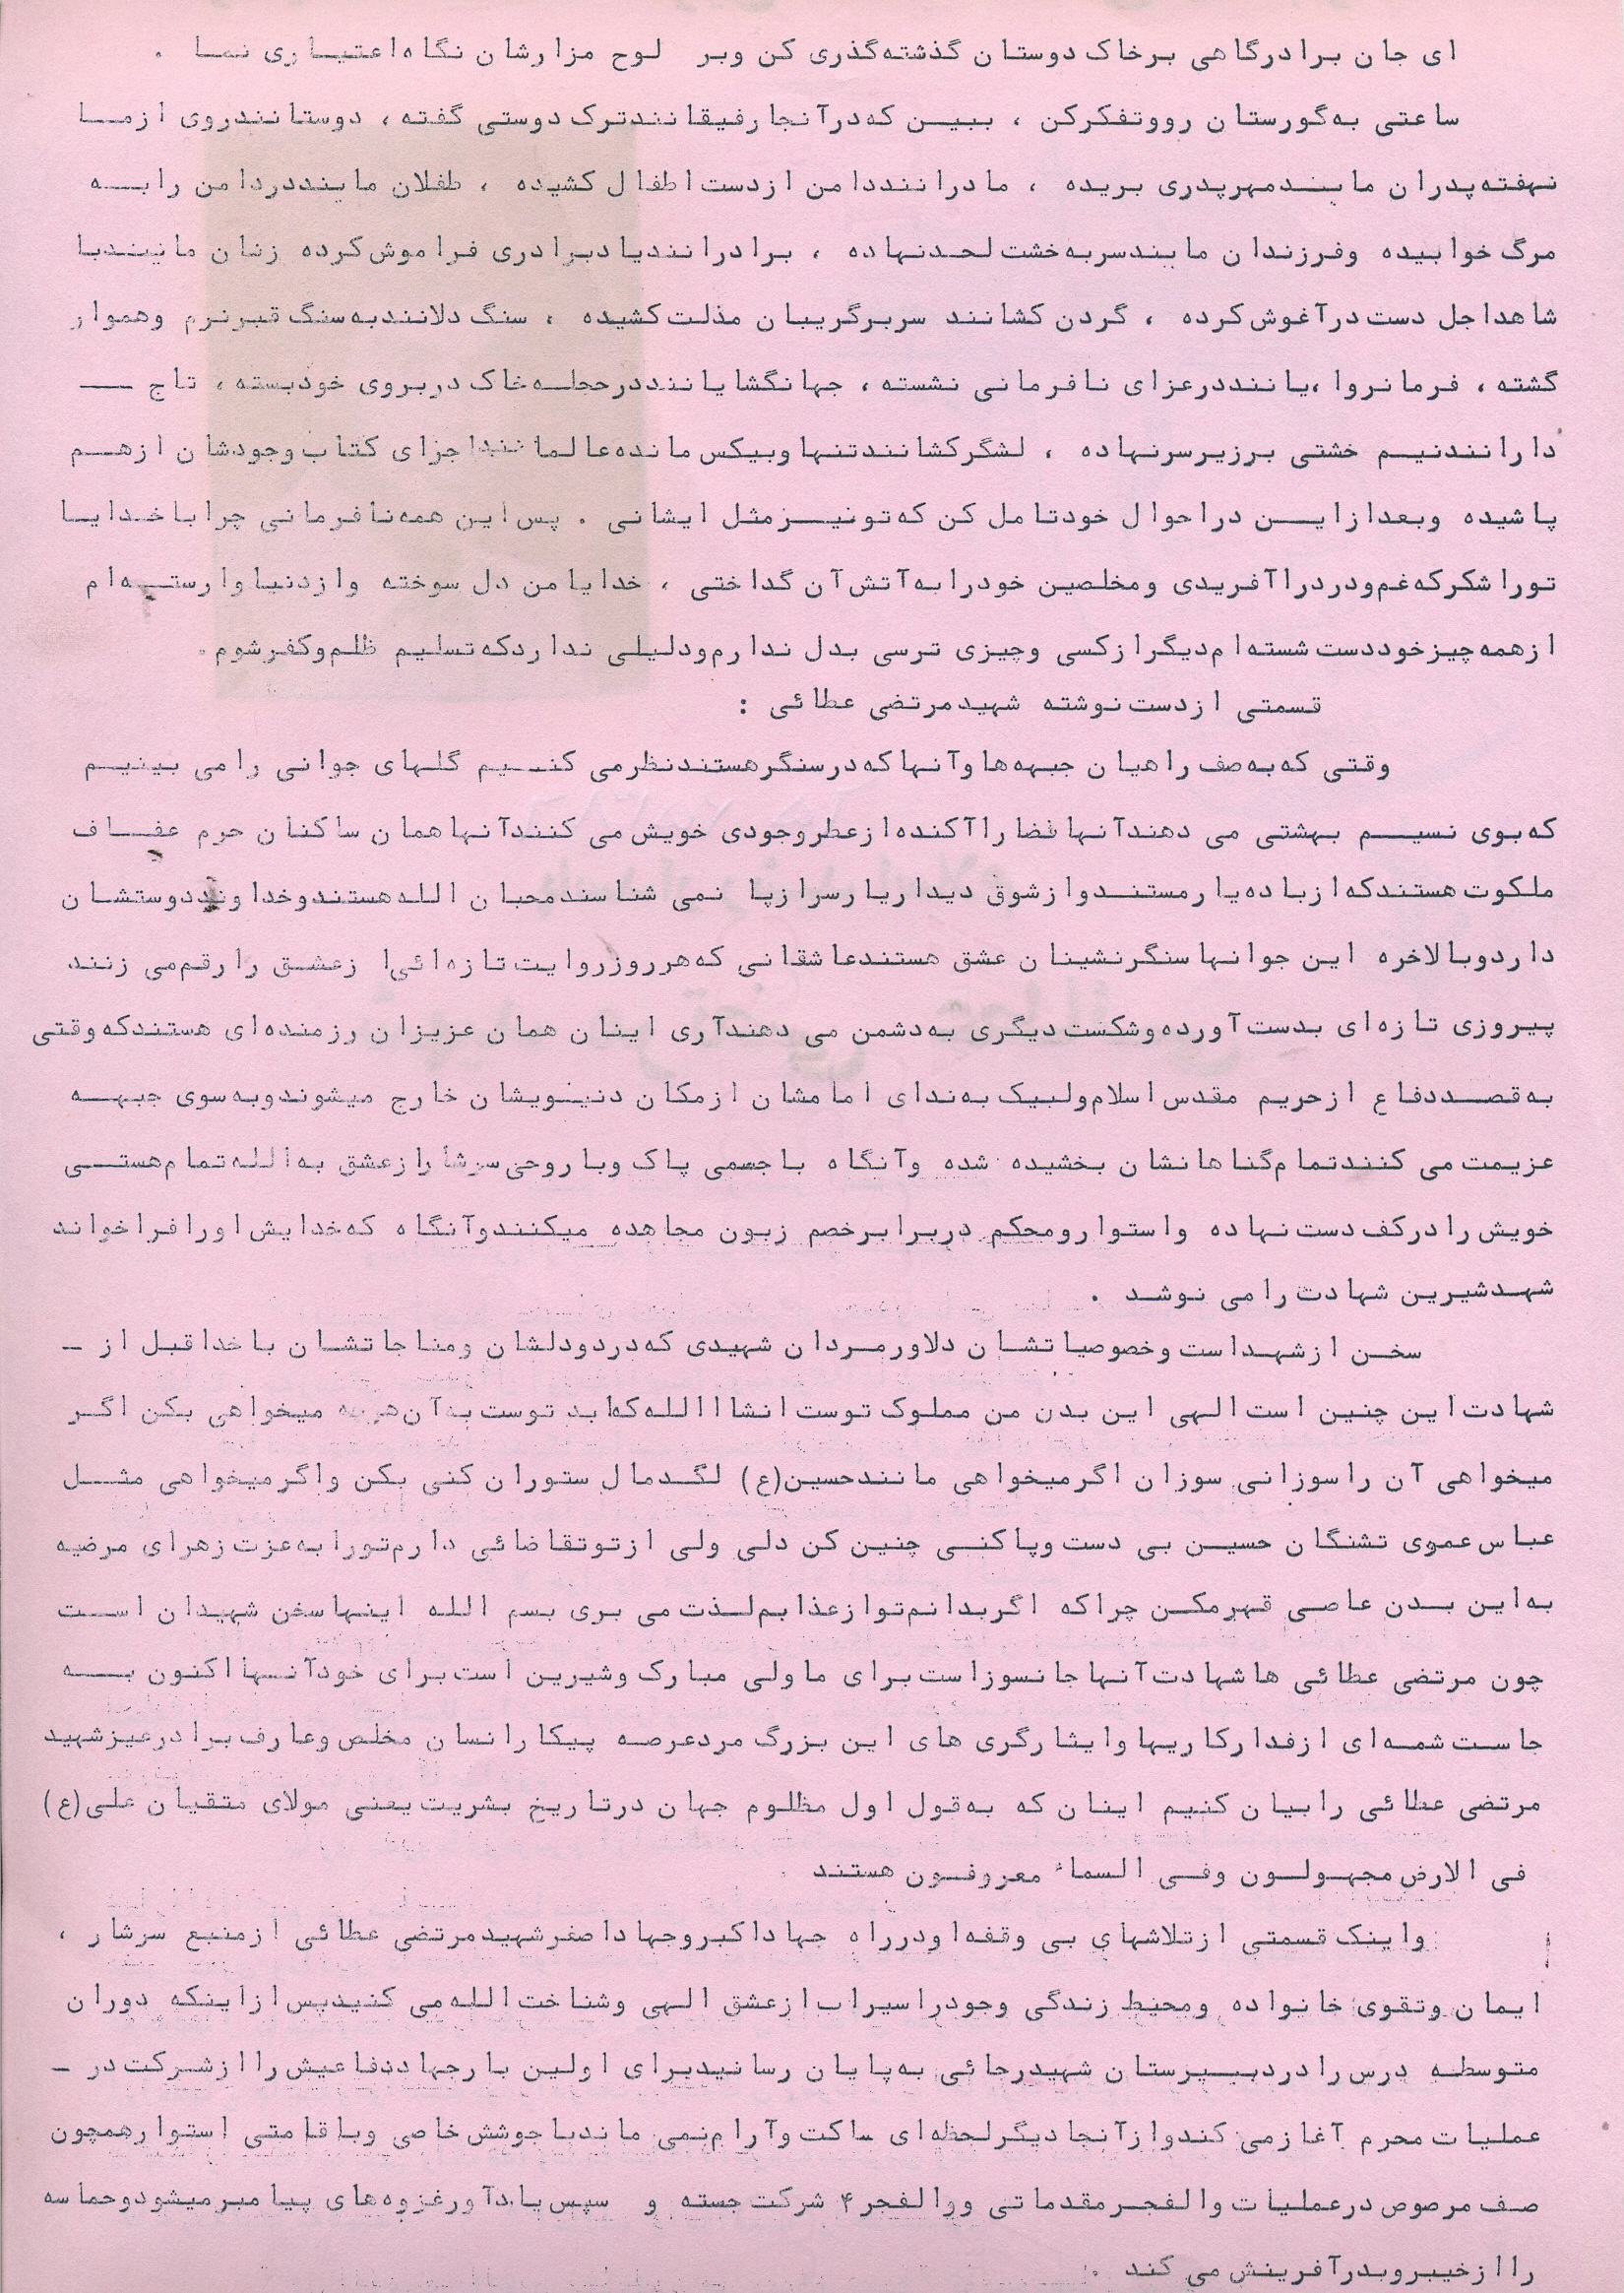 ای جان برادرگاهی برخاک دوستان گذشته‌گذری کن وبر لوح مزارشان نگاه‌اعتیاری نما .
ساعتی به‌گورستان رووتفکرکن ، ببین که‌درآنجا رفیقانندترک دوستی گفته ، دوستانندروی ازما
نهفته‌پدران مایندمهرپدری بریده ، مادرانند‌دامن ازدست‌اطفال کشیده ، طفلان مایند‌دردامن رابه
مرگ خوابیده وفرزندان مایندسربه‌خشت لحدنهاده ، برادرانندیادبرادری فراموش‌کرده زنان مایندبا
شاهداجل دست درآغوش‌کرده ، گردن کشانند سربرگریبان مذلت‌کشیده ، سنگ دلانندبه‌سنگ قبرنرم وهموار
گشته ، فرمانروا ،یاننددرعزای نافرمانی نشسته ، جهانگشایاننددرحجله‌خاک دربروی خودبسته ، تاج —
دارانندنیم خشتی برزیرسرنهاده ، لشگرکشانندتنهاوبیکس مانده‌عالمانند‌اجزای کتاب‌وجودشان ازهم
پاشیده وبعدازاین دراحوال خودتامل کن که‌تونیزمثل ایشانی . پس‌این همه‌نافرمانی چراباخدایا
توراشکرکه‌غم‌ودردراآفریدی ومخلصین خودرابه‌آتش‌آن گداختی ، خدایامن دل سوخته وازدنیاوارسته‌ام
ازهمه‌چیزخوددست‌شسته‌ام‌دیگرازکسی وچیزی ترسی بدل ندارم‌ودلیلی نداردکه‌تسلیم ظلم‌وکفرشوم .
قسمتی ازدست‌نوشته شهیدمرتضی عطائی :
وقتی که‌به‌صف راهیان جبهه‌هاوآنهاکه‌درسنگرهستندنظرمی کنیم گلهای جوانی رامی بینیم
که‌بوی نسیم بهشتی می دهندآنهافضاراآکنده‌ازعطروجودی خویش‌می کنندآنهاهمان ساکنان حرم عفاف
ملکوت هستندکه‌ازباده‌یارمستندوازشوق دیداریارسرازپا نمی شناسندمحبان الله‌هستندوخداونددوستشان
داردوبالاخره این جوانهاسنگرنشینان عشق هستندعاشقانی که‌هرروزروایت‌تازه‌ائی‌ا زعشق رارقم‌می زنند
پیروزی تازه‌ای بدست‌آورده‌وشکست‌دیگری به‌دشمن می دهندآری اینان همان عزیزان رزمنده‌ای هستندکه‌وقتی
به‌قصددفاع ازحریم مقدس‌اسلام‌ولبیک به‌ندای امامشان ازمکان دنیویشان خارج میشوندوبه‌سوی جبهه
عزیمت‌می کنندتمام‌گناهانشان بخشیده شده وآنگاه باجسمی پاک وباروحی‌سرشارازعشق به‌الله‌تمام‌هستی
خویش‌رادرکف‌دست‌نهاده واستوارومحکم دربرابرخصم زبون مجاهده میکنندوآنگاه که‌خدایش‌اورافراخواند
شهدشیرین شهادت‌رامی نوشد .
سخن ازشهداست‌وخصوصیاتشان دلاورمردان شهیدی که‌دردودلشان ومناجاتشان باخداقبل از —
شهادت‌این چنین است‌الهی این بدن من مملوک توست‌انشااالله‌که‌ابد توست‌به‌آن‌هرچه میخواهی بکن اگر
میخواهی آن راسوزانی سوزان اگرمیخواهی مانندحسین(ع) لگدمال ستوران کنی بکن واگرمیخواهی مثل
عباس‌عموی تشنگان حسین بی دست وپاکنی چنین کن دلی ولی ازتوتقاضائی دارم‌تورابه‌عزت‌زهرای مرضیه
به‌این بدن عاصی قهرمکن چراکه اگربدانم‌توازعذابم‌لذت‌می بری بسم الله اینهاسخن شهیدان است
چون مرتضی عطائی هاشهادت‌آنهاجانسوزاست‌برای ماولی مبارک وشیرین است‌برای خودآنهااکنون به
جاست‌شمه‌ای ازفدارکاریهاوایثارگری های این بزرگ مردعرصه پیکارانسان مخلص وعارف‌برادرعیزشهید
مرتضی عطائی رابیان کنیم اینان که به‌قول اول مظلوم جهان درتاریخ بشریت‌یعنی مولای متقیان علی(ع)
فی الارض‌مجهولون وفی السماء معروفون هستند .
واینک قسمتی ازتلاشهای بی وقفه‌اودرراه جهاداکبروجهاداصغرشهیدمرتضی عطائی ازمنبع سرشار ،
ایمان وتقوی خانواده ومحیط زندگی وجودراسیراب‌ازعشق الهی وشناخت‌الله‌می کنیدپس‌ازاینکه دوران
متوسطه درس‌رادردبیرستان شهیدرجائی به‌پایان رسانیدبرای اولین بارجهاددفاعیش‌راازشرکت‌در —
عملیات محرم آغازمی کندوازآنجادیگرلحظه‌ای ساکت وآرام‌نمی ماندباجوشش‌خاصی وباقامتی استوارهمچون
صف مرصوص‌درعملیات والفجرمقدماتی ووالفجر۴ شرکت‌جسته و سپس‌یادآورغزوه‌های پیامبرمیشودوحماسه
راازخیبروبدرآفرینش‌می کند .